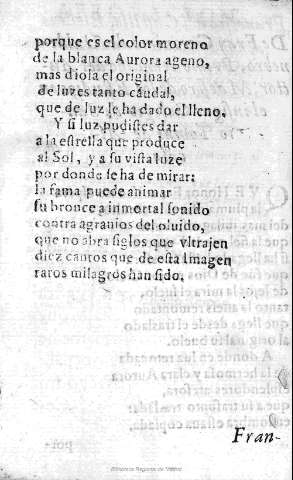 porque es el color moreno
de la blanca Aurora ageno,
mas dióla el original
de luzes tanto caudal,
que de luz le ha dado el lleno.
Y si luz pudistes dar
a la estrella que produce
al Sol, y a su vista luze
por donde le ha de mirar:
la fama puede animar
su bronce a inmortal sonido
contra agrauios del oluido,
que no abra siglos que vltrajen
diez cantos que de esta Imagen
raros milagros han sido.
Fran-